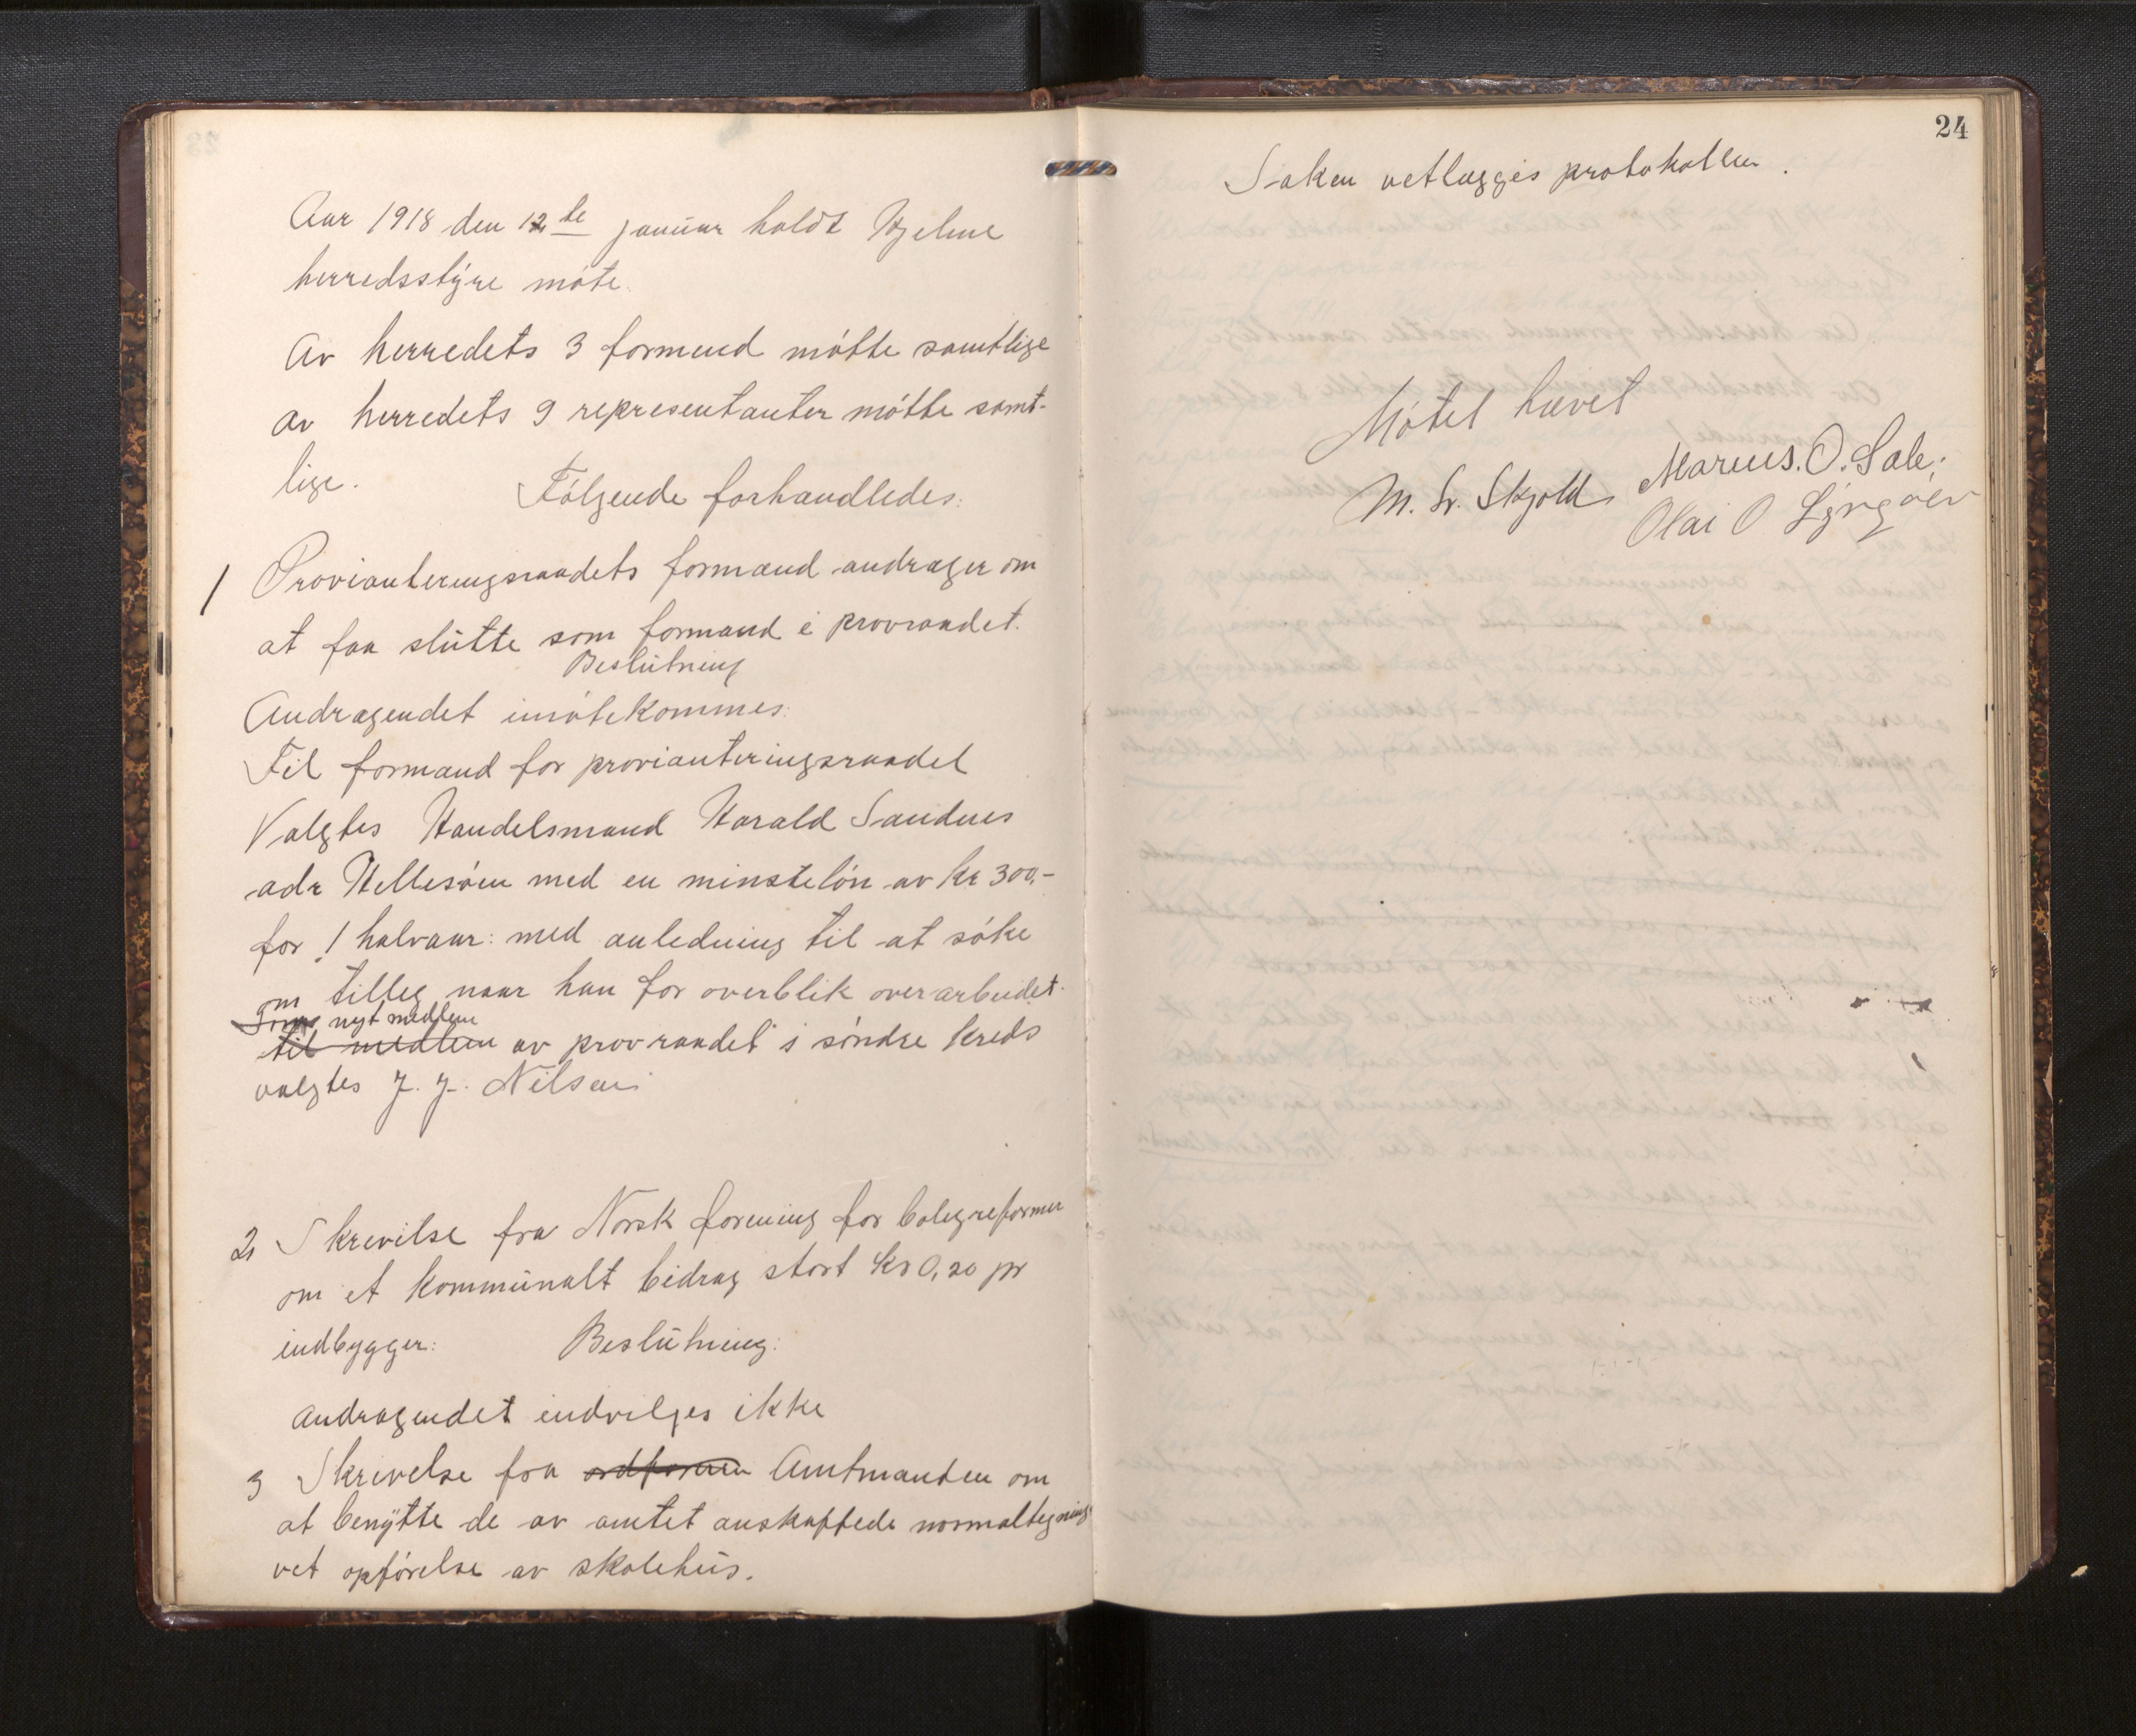 Aar 1918 den 12te januar holdt Hjelme
herredsstyre møte.
Av herredets 3 formend møtte samtlige
av herredets 9 representanter møtte samt-
lige. Følgende forhandledes:
1 Provianteringsraadets formand andrager om
at faa slutte som formand i provraadet.
Beslutning
Andragendet imøtekommes:
Til formand for provianteringsraadet
Valgtes Handelsmand Harald Sandnes
adr Hellesøen med en minsteløn av kr 300,-
for 1 halvaar: med anledning til at søke
om tilleg naar han for overblik over arbeidet.
Som nyt medlem
til medlem av provraadet i søndre kreds
valgtes J. J. Nilsen
2, Skrevilse fra Norsk forening for boligreformer
om et kommunalt bidrag stort kr 0,20 pr
indbygger: Beslutning:
Andragendet indvilges ikke
3 Skrivelse fra ordføreren Amtmanden om
at benytte de av amtet anskaffede normaltegnings
vet opførelse av skolehus.
24
Saken vetlægges protokollen.
Møtet hævet
M. Sr. Skjold Marius. O. Sæle.
Olai O Lyngøen